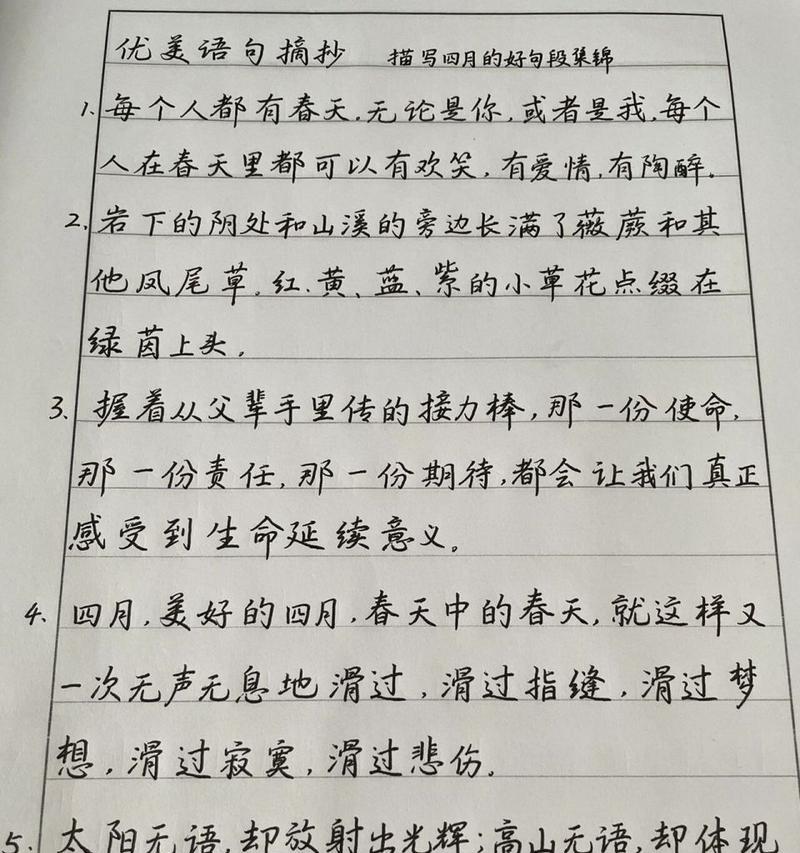 优美语句摘抄 描写四月的好句段集锦
1. 每个人都有春天,无论是你,或者是我,每个
人在春天里都可以有欢笑,有爱情,有陶醉。
2. 岩下的阴处和山溪的旁边长满了薇蕨和其
他凤尾草。红、黄、蓝、紫的小草花点缀在
绿茵上头。
3. 握着从父辈手里传的接力棒,那一份使命,
那一份责任,那一份期待,都会让我们真正
感受到生命延续意义。
4. 四月,美好的四月,春天中的春天,就这样又
一次无声无息地滑过,滑过指缝,滑过梦
想,滑过寂寞,滑过悲伤。
5. 太阳无语,却放射出光辉;高山无语,却体现